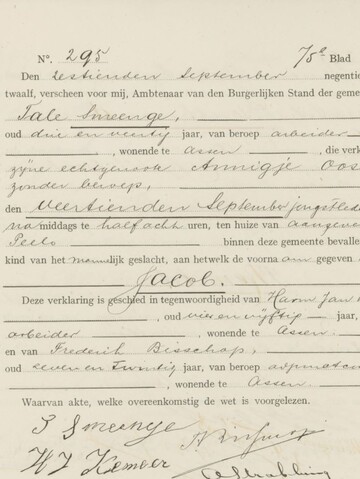 No. 295 75e Blad
Den zestienden September negentie
twaalf, verscheen voor mij, Ambtenaar van den Burgerlijken Stand der geme
Tale Smeenge,
oud drie en veertig jaar, van beroep arbeider
, wonende te Assen, die verk
zijne echtgenoote Annigje Oos
zonder beroep,
den veertienden September jongstlede
na middags te half acht uren, ten huize van aangeve
Peelo binnen deze gemeente bevalle
kind van het mannelijk geslacht, aan hetwelk de voorna am gegeven
Jacob.
Deze verklaring is geschied in tegenwoordigheid van Harm Jan K
, oud vier en vijftig jaar,
arbeider, wonende te Assen
en van Frederik Bisschop,
oud zeven en twintig jaar, van beroep
, wonende te Assen.
Waarvan akte, welke overeenkomstig de wet is voorgelezen.
T Smeenge
H J Kemper